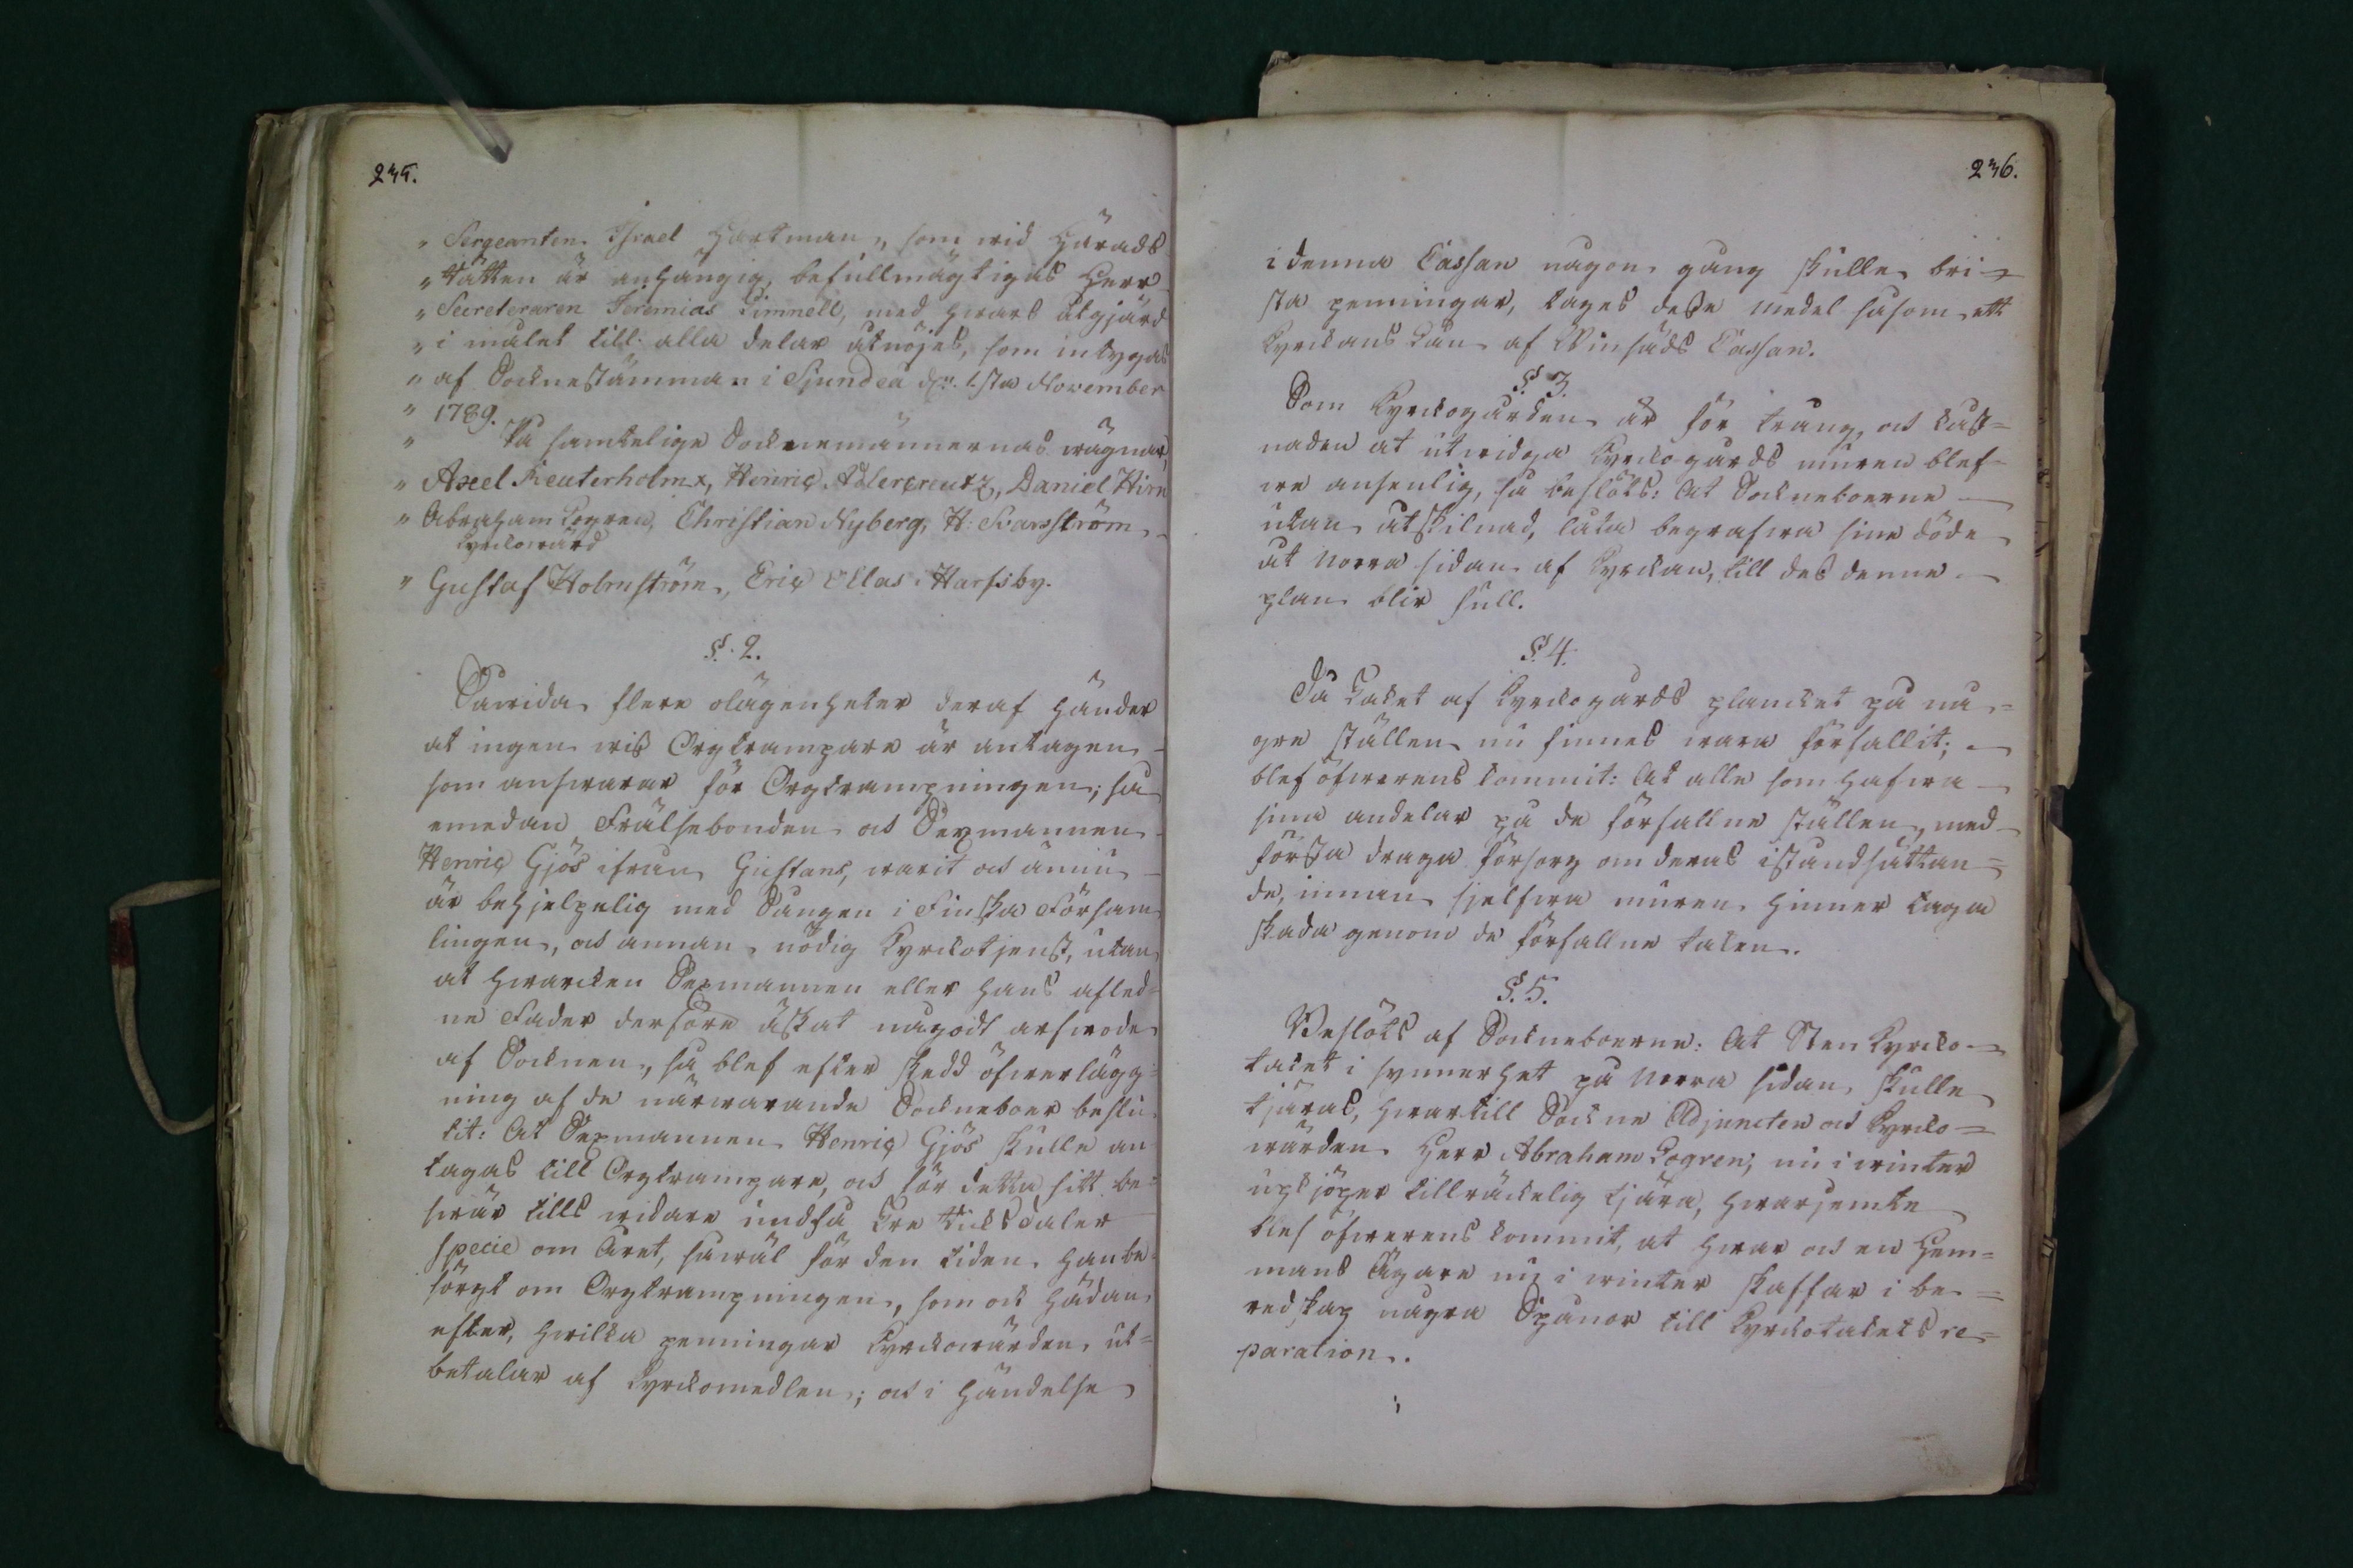 235.
" Sergeanten Israel Hartman, som wid Härads
" Rätten är anhängig, befullmägtigas Herr
" Secreteraren Jeremias Limnell, med hwars åtgjärd
" i målet till alla delar åtnöjes, som intygas
" af Socknestämman i Sjundeå d. 1.sta November
" 1789.
" På samtelige Socknemännernas wägnar,
" Axel Reuterholm, Henric Adlercreutz, Daniel Hirn
" Abraham Logren, Christian Nyberg, H: Svarsström
Kyrckowärd
" Gustaf Holmström, Eric Clas Harfsby.
§. 2.
Såwida flere olägenheter deraf händer
at ingen wis Orgtrampare är antagen
som answarar för Orgtrampningen; så
emedan Frälsebonden och Sexmannen
Henric Gjös ifrån Gustans, warit och ännu
är behjelpelig med Sången i Finska Församlingen,
och annan nödig Kyrckotjenst, utan
at hwarcken Sexmannen eller hans afledne
Fader derföre äskat någodt arfwode
af Socknen, så blef efter skedd öfwerläggning
af de närwarande Sockneboer beslutit:
At Sexmannen Henric Gjös skulle antagas
till Orgtrampare, och för detta sitt beswär
tills widare undfå Tre Riksdaler
Specie om Året, såwäl för den tiden han besörgt
om Orgtrampningen, som ock hädan
efter, hwilka penningar Kyrckowärden utbetalar
af Kyrckomedlen; och i händelse
236.
i denna Cassan någon gång skulle bri-
sta penningar, tages desse medel såsom ett
Kyrckans Lån af Winsäds Cassan.
§. 3.
Som Kyrckogården är för trång, och kåst=
naden at utwidga Kyrckogårds muren blef-
we ansenlig, så beslöts: At Sockneboerne
utan åtskilnad, låta begrafwa sine döde
åt Norra sidan af Kyrckan, till des denne
plan blir full.
§. 4.
Då Taket af Kyrckogårds plancket på nå=
gre ställen nu finnes wara förfallit;
blef öfwerens kommit: At alle som hafwa
sina andelar på de förfallne ställen, med
första draga försorg om deras iståndsättan=
de, innan sjelfwa muren hinner taga
skada genom de förfallne taken.
§. 5.
Beslöts af Sockneboerne: At Sten Kyrcko=
taket i synnerhet på Norra sidan skulle
tjäras, hwartill Sockne Adjuncten och Kyrcko=
wärden Herr Abraham Logren, nu i winter
upköper tillräckelig tjära, hwarjemte
blef öfwerens kommit, at hwar och en Hem=
mans Ägare nu i winter skaffar i be=
redskap några Spånor till Kyrckotakets re=
paration.